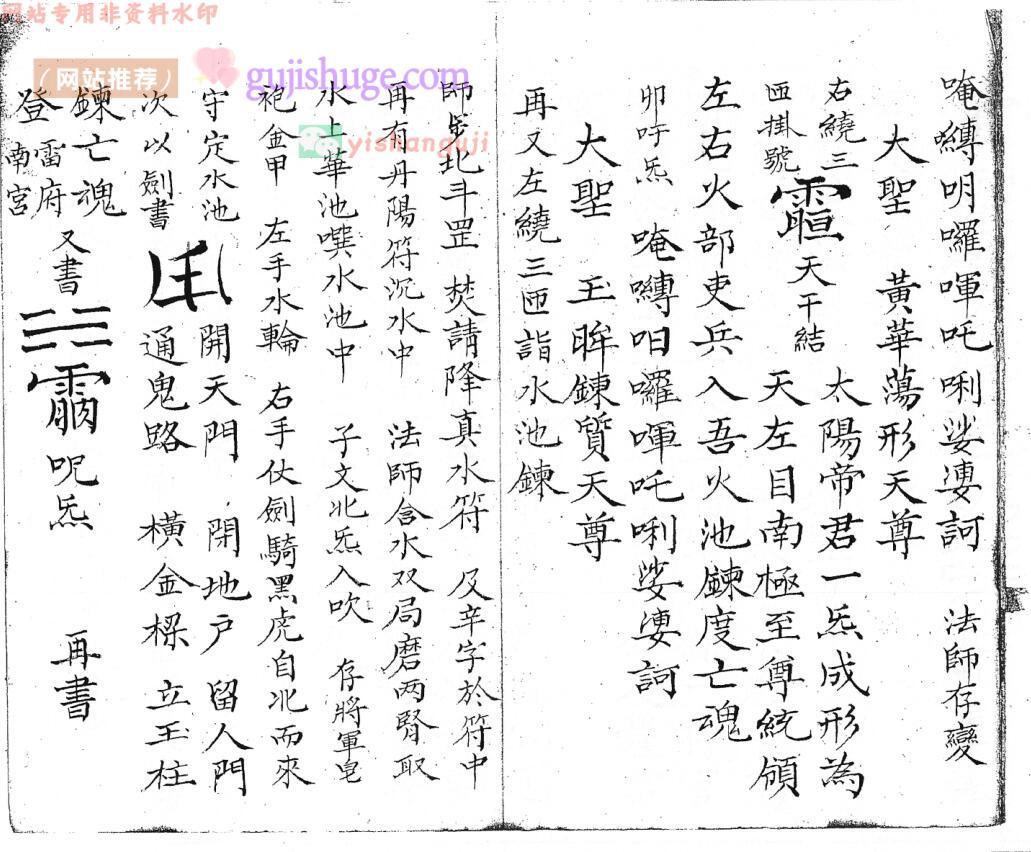 唵嚩明囉啤吒唎娑婁訶　法師存變
大聖　黃華蕩形天尊
右繞三
匝掛號　天干結　太陽帝君一炁成形為
天左目南極至尊統領
左右火部吏兵入吾火池鍊度亡魂
卯吁炁　唵嚩呬囉啤吒唎娑婁訶
大聖　玉眸鍊質天尊
再又左繞三匝詣水池鍊
師步北斗罡　焚請降真水符　及辛字於符中
再有丹陽符沉水中　法師含水双局磨两腎取
水上華池噀水池中　子文北炁入吹　存將軍皂
袍金甲　左手水輪　右手仗劍騎黑虎自北而來
守定水池　開天門　閉地户　留人門
次以劍書　通鬼路　橫金樑　立玉柱
鍊亡魂
登雷府南宮　又書　呪炁　再書
网站专用非资料水印
（网站推荐）
gujishuge.com
yishanguji